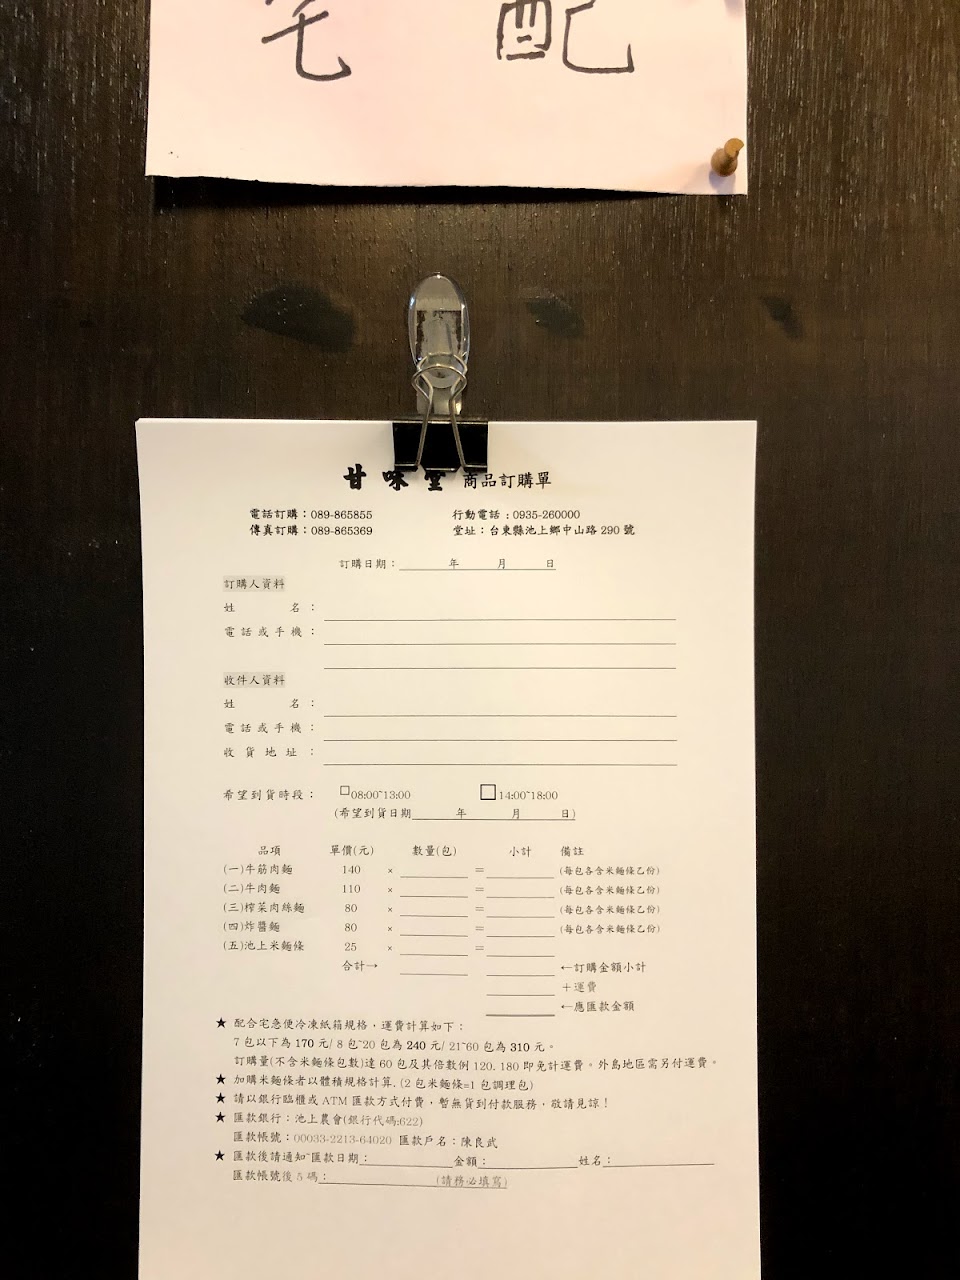 宅 配
甘 味 堂 商品訂購單
電話訂購：089-865855 行動電話：0935-260000
傳真訂購：089-865369 堂址：台東縣池上鄉中山路 290 號
訂購日期：＿＿＿年＿＿＿月＿＿＿日
訂購人資料
姓 名：
電話或手機：
收件人資料
姓 名：
電話或手機：
收貨地址：
希望到貨時段： □08:00~13:00 □14:00~18:00
(希望到貨日期＿＿＿年＿＿＿月＿＿＿日)
品項 單價(元) 數量(包) 小計 備註
(一)牛筋肉麵 140 × ＿＿＿ = ＿＿＿ (每包各含米麵條乙份)
(二)牛肉麵 110 × ＿＿＿ = ＿＿＿ (每包各含米麵條乙份)
(三)榨菜肉絲麵 80 × ＿＿＿ = ＿＿＿ (每包各含米麵條乙份)
(四)炸醬麵 80 × ＿＿＿ = ＿＿＿ (每包各含米麵條乙份)
(五)池上米麵條 25 × ＿＿＿ = ＿＿＿
合計→ ＿＿＿ ＿＿＿ ←訂購金額小計
＿＿＿ ＋運費
＿＿＿ ←應匯款金額
★ 配合宅急便冷凍紙箱規格，運費計算如下：
7 包以下為 170 元/ 8 包~20 包為 240 元/ 21~60 包為 310 元。
訂購量(不含米麵條包數)達 60 包及其倍數例 120. 180 即免計運費。外島地區需另付運費。
★ 加購米麵條者以體積規格計算. (2 包米麵條=1 包調理包)
★ 請以銀行臨櫃或 ATM 匯款方式付費，暫無貨到付款服務，敬請見諒！
★ 匯款銀行：池上農會(銀行代碼:622)
匯款帳號：00033-2213-64020 匯款戶名：陳良武
★ 匯款後請通知~匯款日期：＿＿＿金額：＿＿＿姓名：＿＿＿
匯款帳號後 5 碼：＿＿＿(請務必填寫)